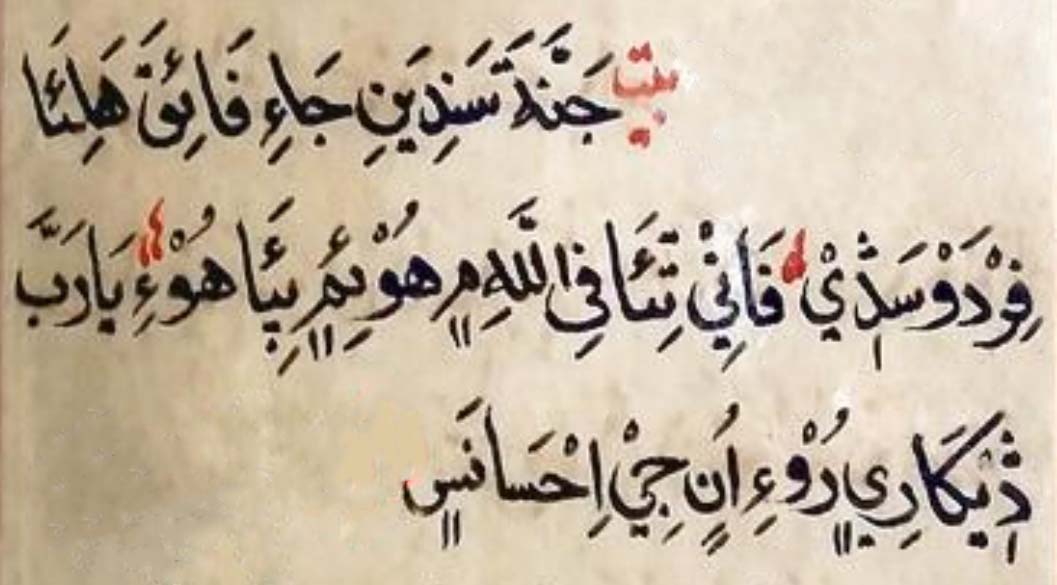 بيت جَنَّةَ سَنِدِيَنِ جَاءِ فَائِقَ هَلِئَا
فِرْدَوْسَ ڎِيْ فَانِيْ تِئَا فِي اللّٰهِ مٍ هُوْ ئِمٍ بِئَا هُوْءِ يَا رَبَّ
ڎِيکَارِي رُوْءِ اُنِ جِيْ اِحْسَانَسٍ